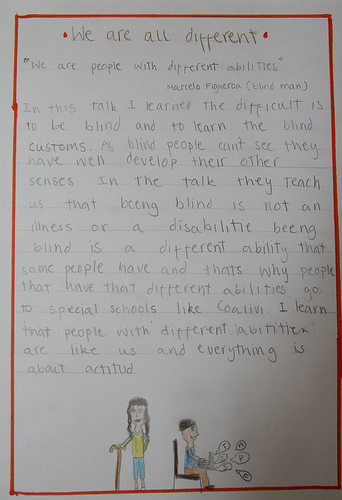 We are all different
"We are people with different abilities"
Marcelo Figueroa (blind man)
In this talk I learned the difficult is
to be blind and to learn the blind
customs. As blind people cant see they
have well develop their other
senses In the talk they teach
us that beeng blind is not an
illness or a disabilitie beeng
blind is a different ability that
some people have and thats why people
that have that different abilities go
to special schools like Coalivi. I learn
that people with different abilities
are like us and everything is
about actitud.